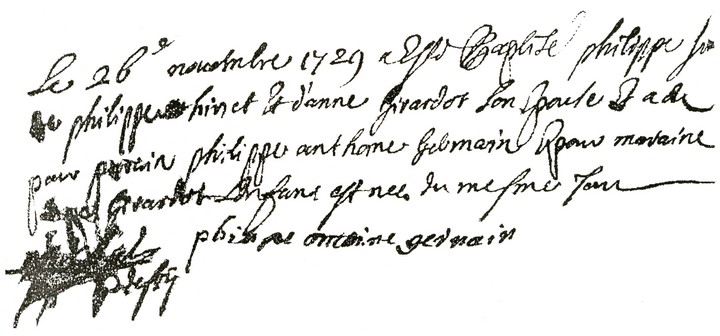 Le 26e novembre 1729 a Esté Baptisé philippe fis
de philippe thinet Et d'anne Girardot son Epouse Et a eu
pour parain philippe anthone Germain Et pour maraine
Girardot L'enfant est nee du mesme Jour
philippe antoine germain